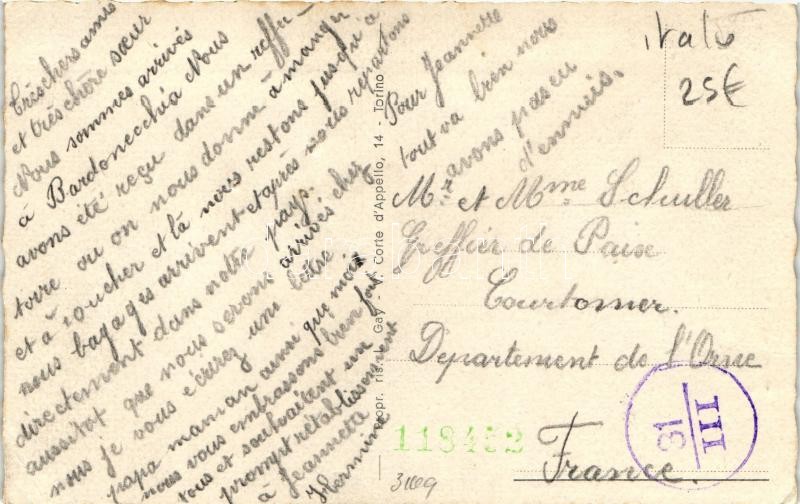 Trèschers amis
et trèschère sœur
Nous sommes arrivés
à Bardonecchia Nous
avons été reçu dans un réffec
toire ou on nous donne à manger
et à coucher et là nous restons jusqu'à
nous bagages arrivent et après nous repartons
directement dans notre pays.
aussitot que nous serons arrivés chez
nous je vous écrirez une lettre
papa maman ainsi que moi
nous vous embrassons bien fort
tous et souhaitent un
prompt rétablissement
à Jeannette
Hermine
Pour Jeannette
tout va bien nous
avons pas eu
d'ennuis.
Gay - V. Corte d'Appello, 14 - Torino
italo
25€
Mr et Mme Schuller
Greffier de Paix
Courtomer.
Departement de l'Orne
France.
118452
31
III
3109